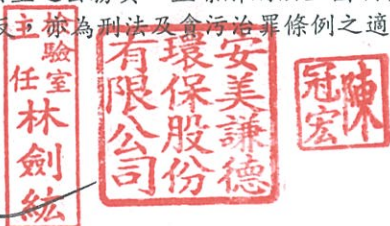 反，亦為刑法及貪污治罪條例之適
檢驗室
主任林劍紘
安美謙德
環保股份
有限公司
陳冠宏